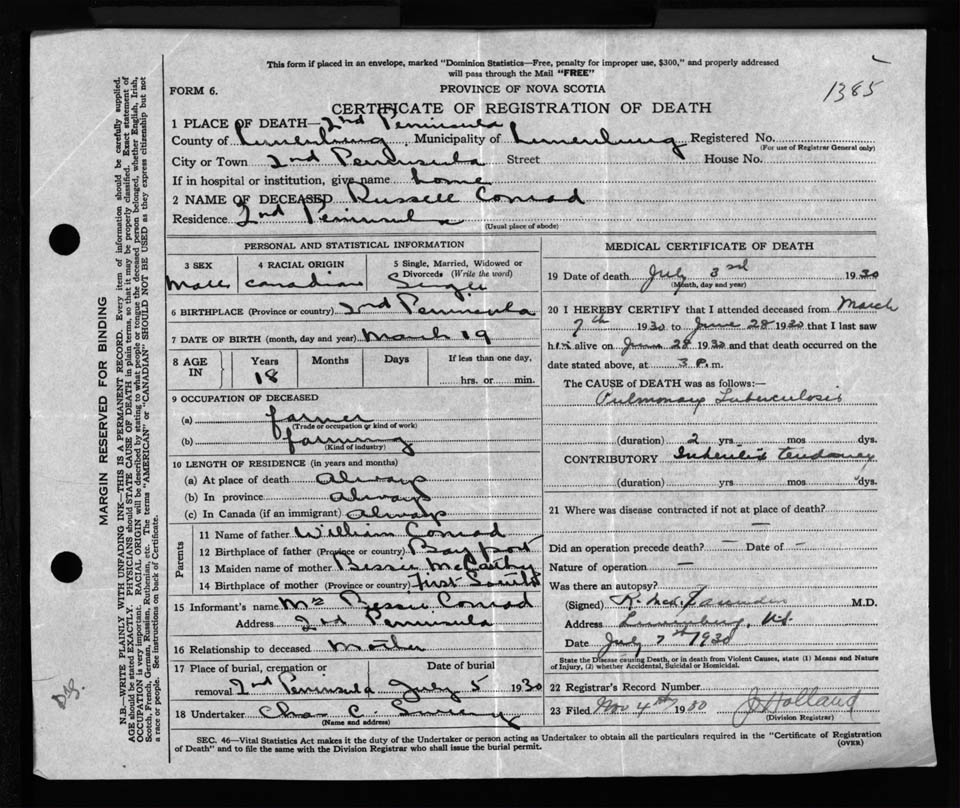 This form if placed in an envelope, marked "Dominion Statistics—Free, penalty for improper use, $300," and properly addressed
will pass through the Mail "FREE"
1385
FORM 6.
PROVINCE OF NOVA SCOTIA
CERTIFICATE OF REGISTRATION OF DEATH
1 PLACE OF DEATH— 2nd Peninsula
County of Lunenburg, Municipality of Lunenburg Registered No.
(For use of Registrar General only)
City or Town 2nd Peninsula Street House No.
If in hospital or institution, give name home
2 NAME OF DECEASED Russell Conrad
Residence 2nd Peninsula
(Usual place of abode)
PERSONAL AND STATISTICAL INFORMATION
3 SEX 4 RACIAL ORIGIN 5 Single, Married, Widowed or Divorced (Write the word)
Male Canadian Single
6 BIRTHPLACE (Province or country) 2nd Peninsula
7 DATE OF BIRTH (month, day and year) March 19
8 AGE IN Years Months Days If less than one day,
18 hrs. or min.
9 OCCUPATION OF DECEASED
(a) farmer
(Trade or occupation or kind of work)
(b) farming
(Kind of industry)
10 LENGTH OF RESIDENCE (in years and months)
(a) At place of death always
(b) In province always
(c) In Canada (if an immigrant) always
Parents
11 Name of father William Conrad
12 Birthplace of father (Province or country) Bayport
13 Maiden name of mother Bessie McCarthy
14 Birthplace of mother (Province or country) First South
15 Informant's name Mrs Bessie Conrad
Address 2nd Peninsula
16 Relationship to deceased Mother
17 Place of burial, cremation or Date of burial
removal 2nd Peninsula July 5 1930
18 Undertaker Chas. C.
(Name and address)
MEDICAL CERTIFICATE OF DEATH
19 Date of death July 3rd 1930
(Month, day and year)
20 I HEREBY CERTIFY that I attended deceased from March
7th 1930 to June 28 1930 that I last saw
him alive on June 28 1930 and that death occurred on the
date stated above, at 3 P.m.
The CAUSE of DEATH was as follows:—
Pulmonary Tuberculosis
(duration) 2 yrs. mos dys.
CONTRIBUTORY tendency
(duration) yrs mos dys.
21 Where was disease contracted if not at place of death?
—
Did an operation precede death? — Date of —
Nature of operation —
Was there an autopsy?
(Signed) M.D.
Address Lunenburg, N.S.
Date July 7th 1930
State the Disease causing Death, or in Death from Violent Causes, state (1) Means and Nature
of Injury, (2) whether Accidental, Suicidal or Homicidal.
22 Registrar's Record Number
23 Filed Nov 4th 1930 J Holland
(Division Registrar)
SEC. 46—Vital Statistics Act makes it the duty of the Undertaker or person acting as Undertaker to obtain all the particulars required in the "Certificate of Registration
of Death" and to file the same with the Division Registrar who shall issue the burial permit.
(OVER)
MARGIN RESERVED FOR BINDING
N.B.—WRITE PLAINLY WITH UNFADING INK—THIS IS A PERMANENT RECORD. Every item of information should be carefully supplied.
AGE should be stated EXACTLY. PHYSICIANS should STATE CAUSE OF DEATH in plain terms, so that it may be properly classified. Exact statement of
OCCUPATION is very important. RACIAL ORIGIN will be described by stating to what people or tongue the deceased person belonged, whether English, Irish,
Scotch, French, German, Russian, Ruthenian, etc. The terms "AMERICAN" or "CANADIAN" SHOULD NOT BE USED as they express citizenship but not
a race or people. See instructions on back of Certificate.